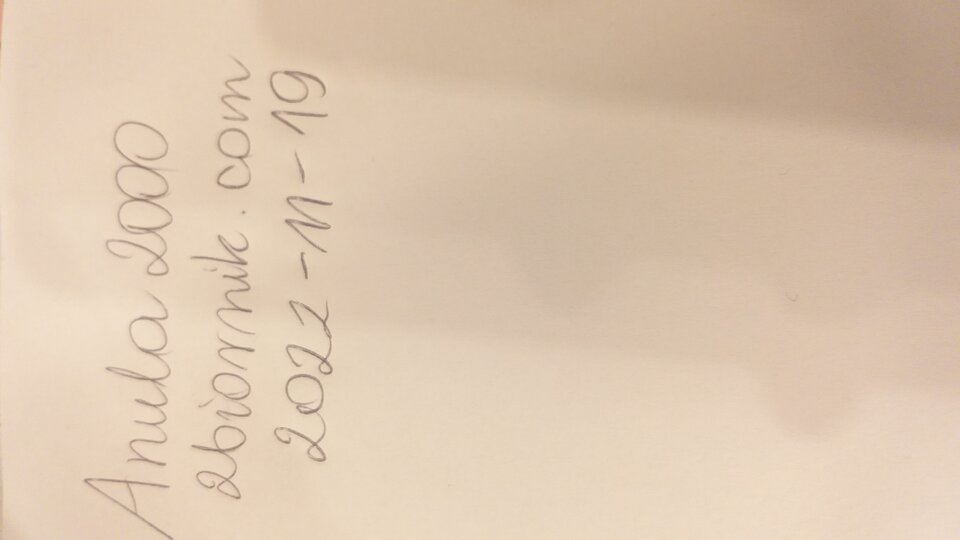 Anula 2000
zbiornik.com
2022-11-19